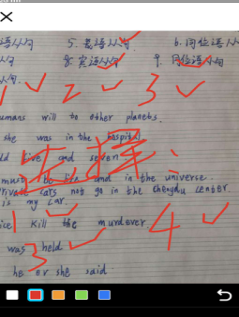 语从句 5. 表语从句 6. 同位语从
8. 宾语从句 9. 同位语从句
从句.
1 2 3
umans will to other planets.
she was in the hospital.
ld five and seven
选择:
must be and in the universe.
cats not go in the chengdu center.
is my car.
ise kill the murderer
1 4
was held
3
he or she said